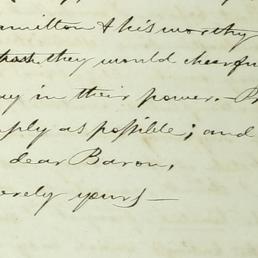 amilton & his worthy
that they would cheerfu
ay in their power.—
mply as possible; and
dear Baron,
erely yours—